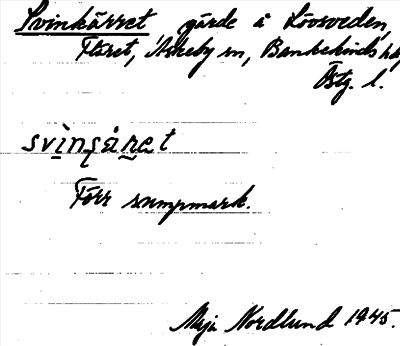 Svinkärret gärde å Lövsveden,
Flöret, Askeby sn, Bankekinds hd,
Östg. l.
svìnçä́ṛet
Förr sumpmark.
Maja Nordlund 1945.